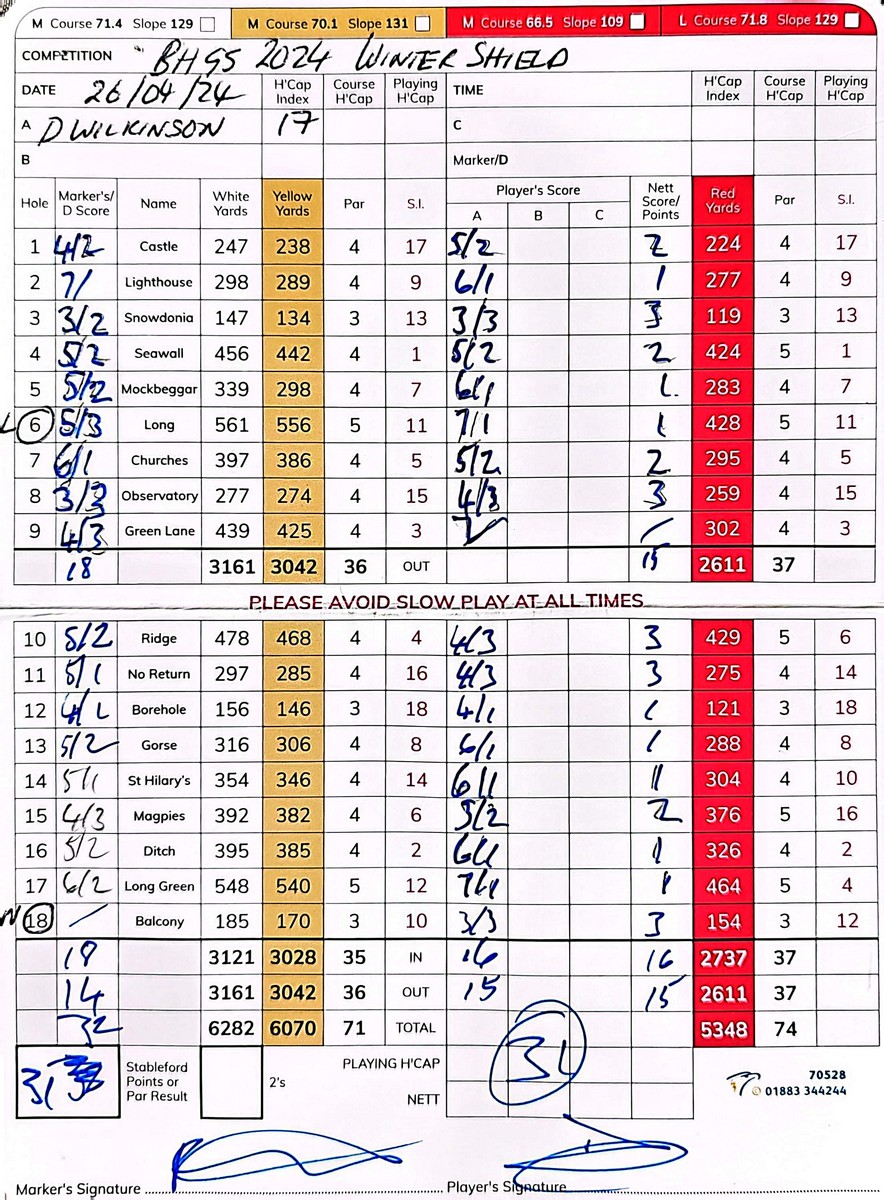 M Course 71.4 Slope 129 M Course 70.1 Slope 131 M Course 66.5 Slope 109 L Course 71.8 Slope 129
COMPETITION BHGS 2024 WINTER SHIELD
DATE 26/04/24 H'Cap Index Course H'Cap Playing H'Cap TIME H'Cap Index Course H'Cap Playing H'Cap
A D WILKINSON 17 C
B Marker/D
Hole Marker's/ D Score Name White Yards Yellow Yards Par S.I. Player's Score A B C Nett Score/ Points Red Yards Par S.I.
1 4/2 Castle 247 238 4 17 5/2 2 224 4 17
2 7/ Lighthouse 298 289 4 9 6/1 1 277 4 9
3 3/2 Snowdonia 147 134 3 13 3/3 3 119 3 13
4 5/2 Seawall 456 442 4 1 5/2 2 424 5 1
5 5/2 Mockbeggar 339 298 4 7 6/1 1. 283 4 7
6 5/3 Long 561 556 5 11 7/1 1 428 5 11
7 6/1 Churches 397 386 4 5 5/2 2 295 4 5
8 3/3 Observatory 277 274 4 15 4/3 3 259 4 15
9 4/3 Green Lane 439 425 4 3 / 302 4 3
18 3161 3042 36 OUT 15 2611 37
PLEASE AVOID SLOW PLAY AT ALL TIMES
10 5/2 Ridge 478 468 4 4 4/3 3 429 5 6
11 5/1 No Return 297 285 4 16 4/3 3 275 4 14
12 4/1 Borehole 156 146 3 18 4/1 1 121 3 18
13 5/2 Gorse 316 306 4 8 6/1 1 288 4 8
14 5/1 St Hilary's 354 346 4 14 6/1 1 304 4 10
15 4/3 Magpies 392 382 4 6 5/2 2 376 5 16
16 5/2 Ditch 395 385 4 2 6/1 1 326 4 2
17 6/2 Long Green 548 540 5 12 7/1 1 464 5 4
18 / Balcony 185 170 3 10 3/3 3 154 3 12
18 3121 3028 35 IN 16 16 2737 37
14 3161 3042 36 OUT 15 15 2611 37
32 6282 6070 71 TOTAL 5348 74
31 Stableford Points or Par Result 2's PLAYING H'CAP 31 70528
NETT 01883 344244
Marker's Signature Player's Signature